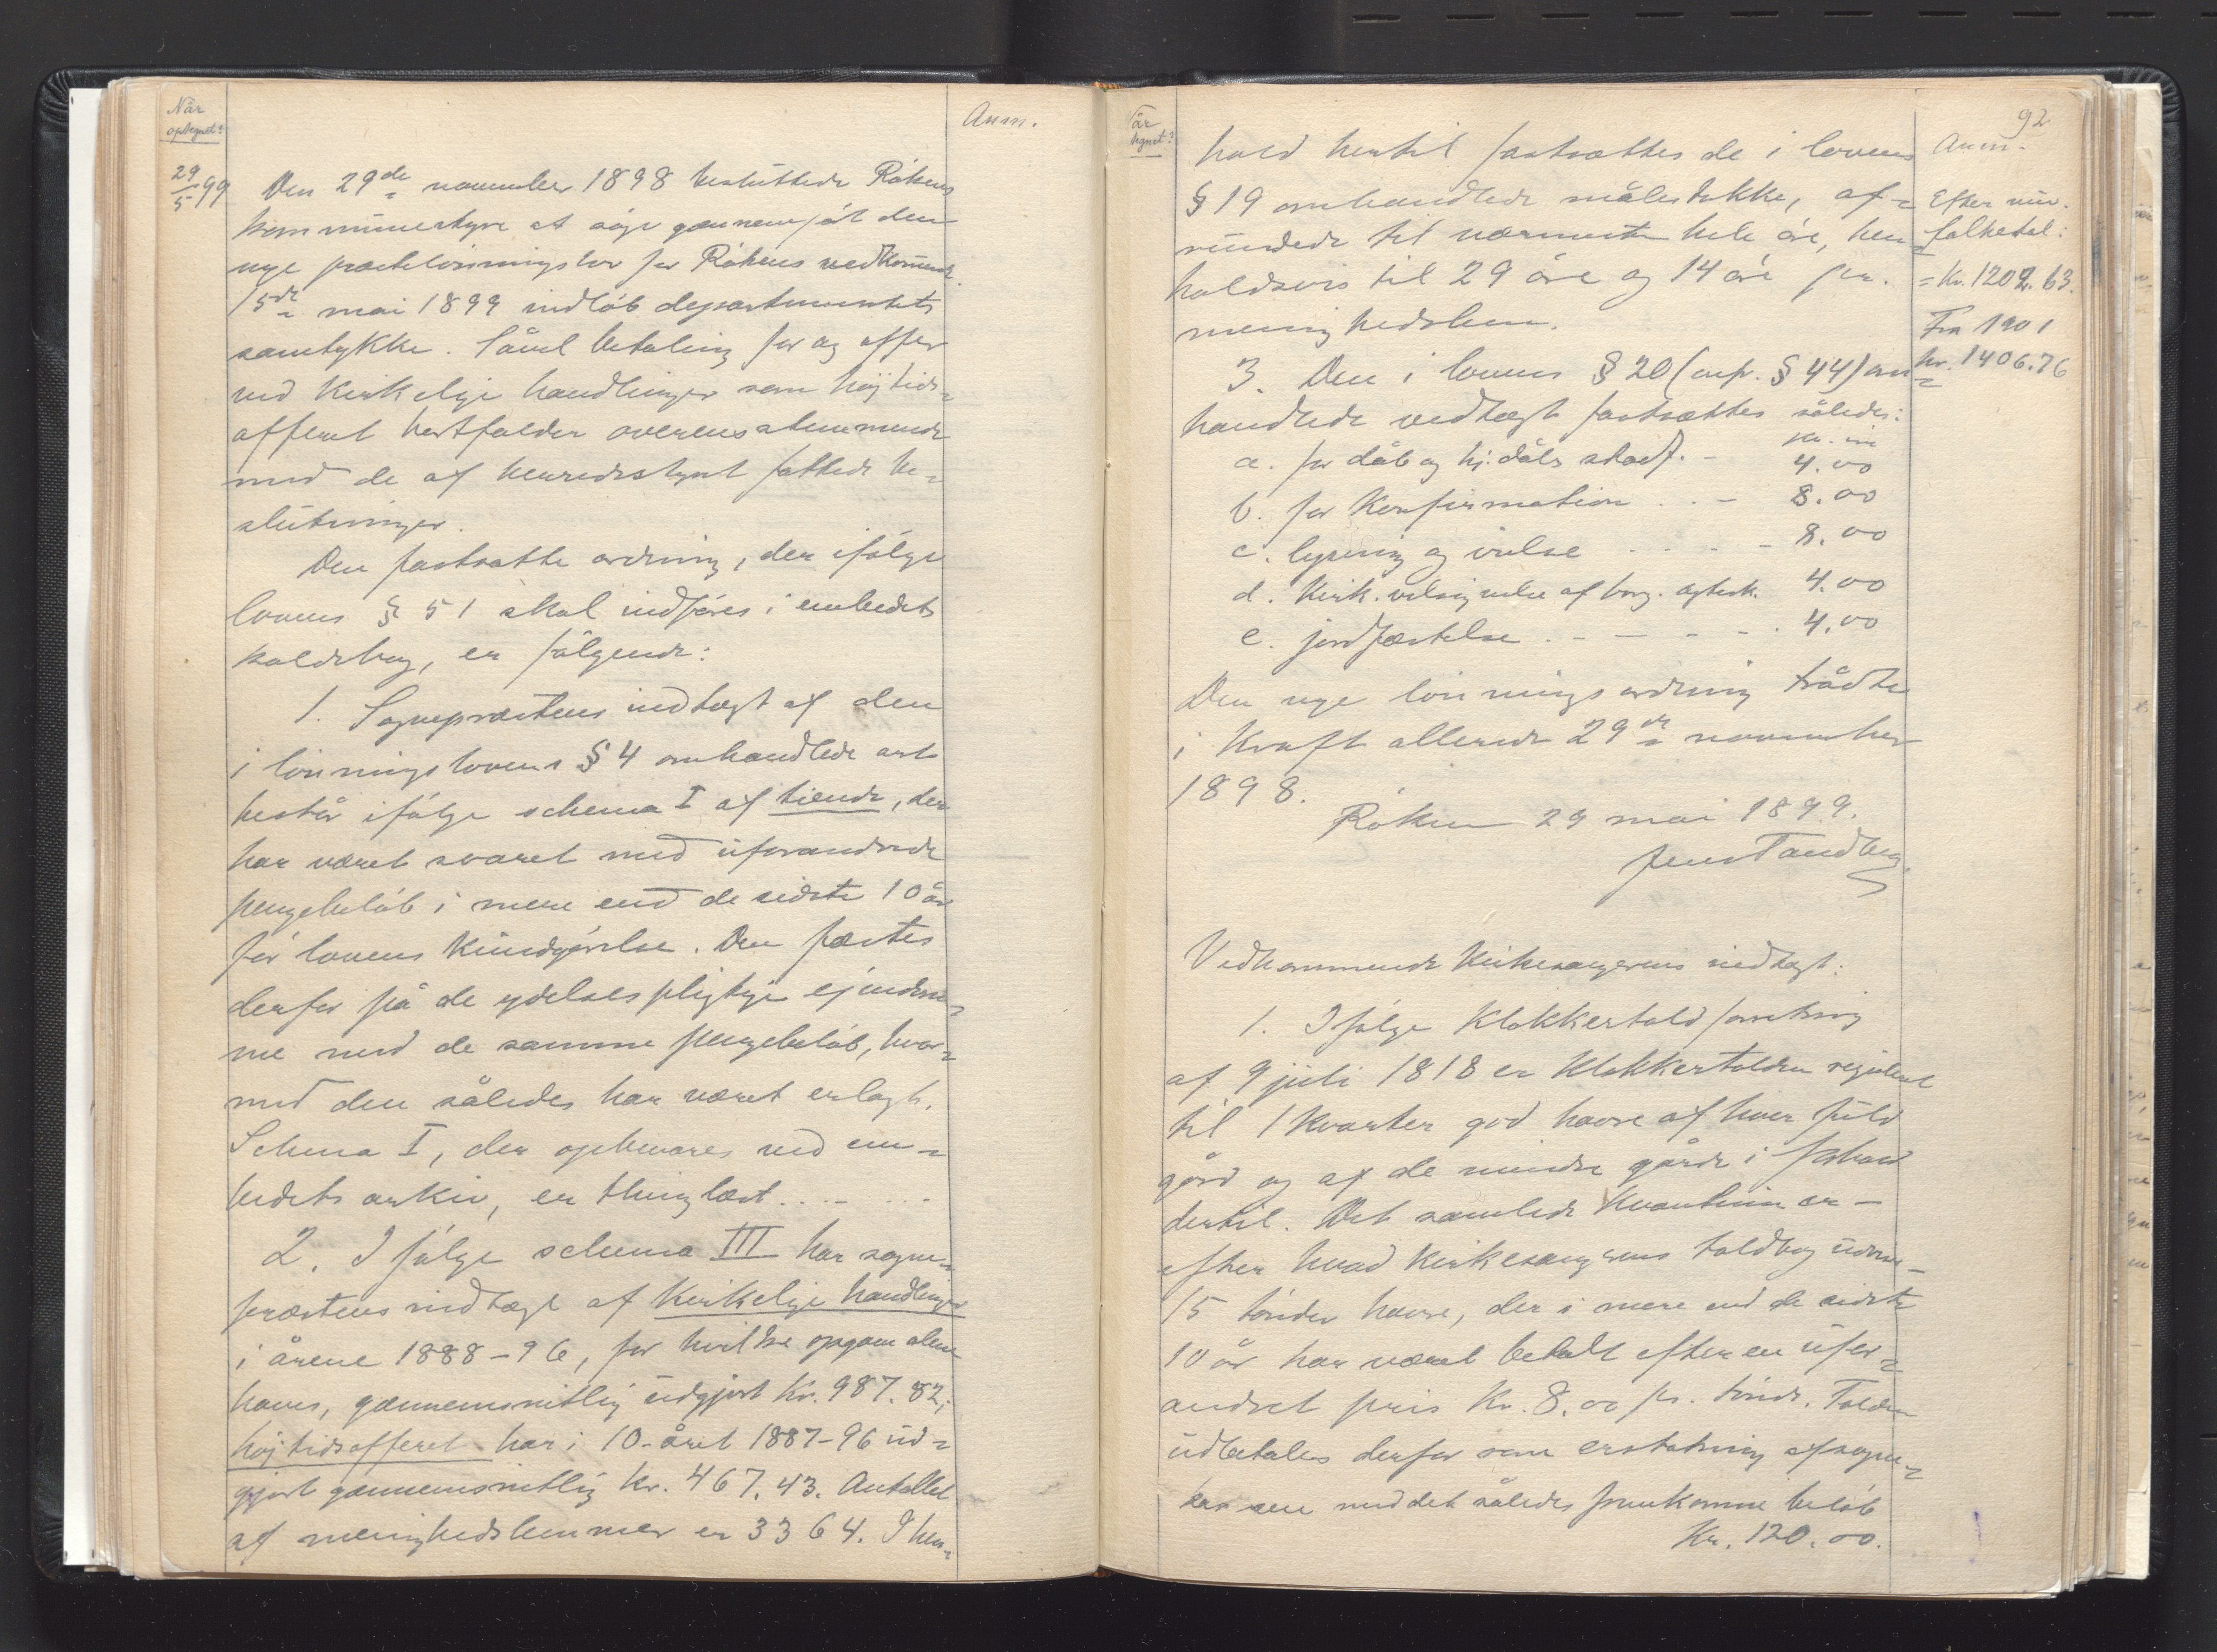 När
optegnet?
Anm.
29/5 99
Den 29de november 1898 besluttede Rökens
kommunestyre at söge gænnemfört den
nye prestelönningslov for Rökens vedkommende.
15de mai 1899 indlöb departementets
samtykke. Såvel betaling for og offer
ved kirkelige handlinger som höjtids-
offeret bortfalder overensstemmende
med de af herredsstyret fattede be-
slutninger.
Den fastsatte ordning, der ifölge
lovens § 51 skal indföres i embedets
kaldsbog, er fölgende:
1. Sogneprestens indtægt af den
i lönningslovens § 4 omhandlede art
består ifölge schema I af tiende, der
har været svaret med uforandrede
pengebelöb i mere end de sidste 10 år
för lovens kundgjörelse. Den fæstes
derfor på de ydelsespligtige ejendom-
me med de samme pengebelöb, hvor-
med den således har været erlagt.
Schema I, der opbevares ved em-
bedets arkiv, er thinglæst. . . . . .
2. Ifölge schema III har sogne-
prestens indtægt af kirkelige handlinger
i årene 1888-96, for hvilke opgave alene
haves, gænnemsnitlig udgjort Kr. 987.82;
höjtidsofferet har i 10-året 1887-96 ud-
gjort gænnemsnitlig kr. 467.43. Antallet
af menighedslemmer er 3364. I hen-
92
Når
tegnet?
Anm.
hold hertil fastsættes de i lovens
§ 19 omhandlede målestokke, af-
rundede til nærmeste hele öre, hen-
holdsvis til 29 öre og 14 öre pr.
menighedslem.
Efter nuv.
folketal:
= Kr. 1202.63.
Fra 1901
kr. 1406.76
3. Den i lovens § 20 (cnfr. § 44) om-
handlede vedtægt fastsættes således:
kr. öre
a. for dåb og hj.dåbs stadf. - 4.00
b. for konfirmation . . - 8.00
c. lysning og vielse - - - - 8.00
d. kirk. velsignelse af borg. ægtesk. 4.00
e. jordfæstelse . - - - - . 4.00
Den nye lönningsordning trådte
i kraft allerede 29de november
1898.
Röken 29 mai 1899.
Jens Tandberg.
Vedkommende kirkesangerens indtægt:
1. Ifölge Klokkertoldforretning
af 9 juli 1818 er Klokkertolden reguleret
til 1 kvarter god havre af hver fuld
gård og af de mindre gårde i forhold
dertil. Det samlede kvantum er -
efter hvad kirkesangerens toldbog udvise -
15 tönder havre, der i mere end de sidste
10 år har været betalt efter en ufor-
andret pris Kr. 8.00 pr. tönde. Tolden
udbetales derfor som erstatning af sogne-
kassen med det således fremkomne belöb
Kr. 120.00.